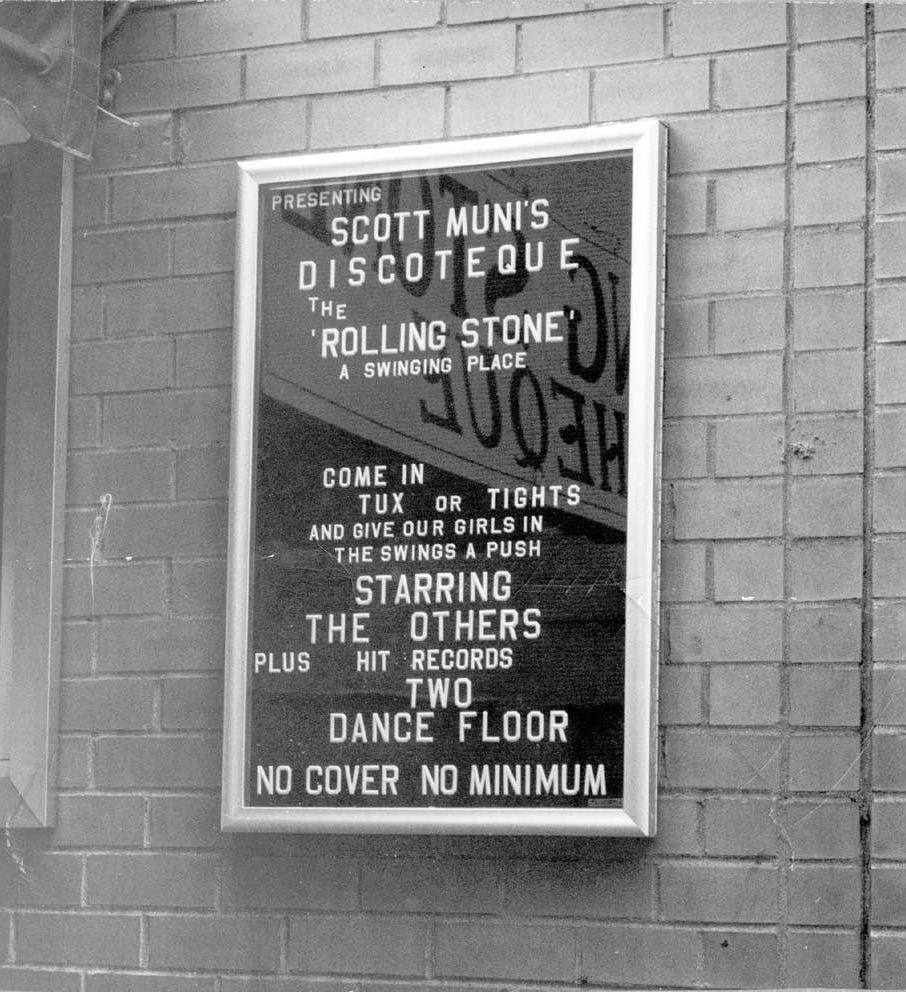 PRESENTING
SCOTT MUNI'S
DISCOTEQUE
THE
'ROLLING STONE'
A SWINGING PLACE
COME IN
TUX OR TIGHTS
AND GIVE OUR GIRLS IN
THE SWINGS A PUSH
STARRING
THE OTHERS
PLUS HIT RECORDS
TWO
DANCE FLOOR
NO COVER NO MINIMUM